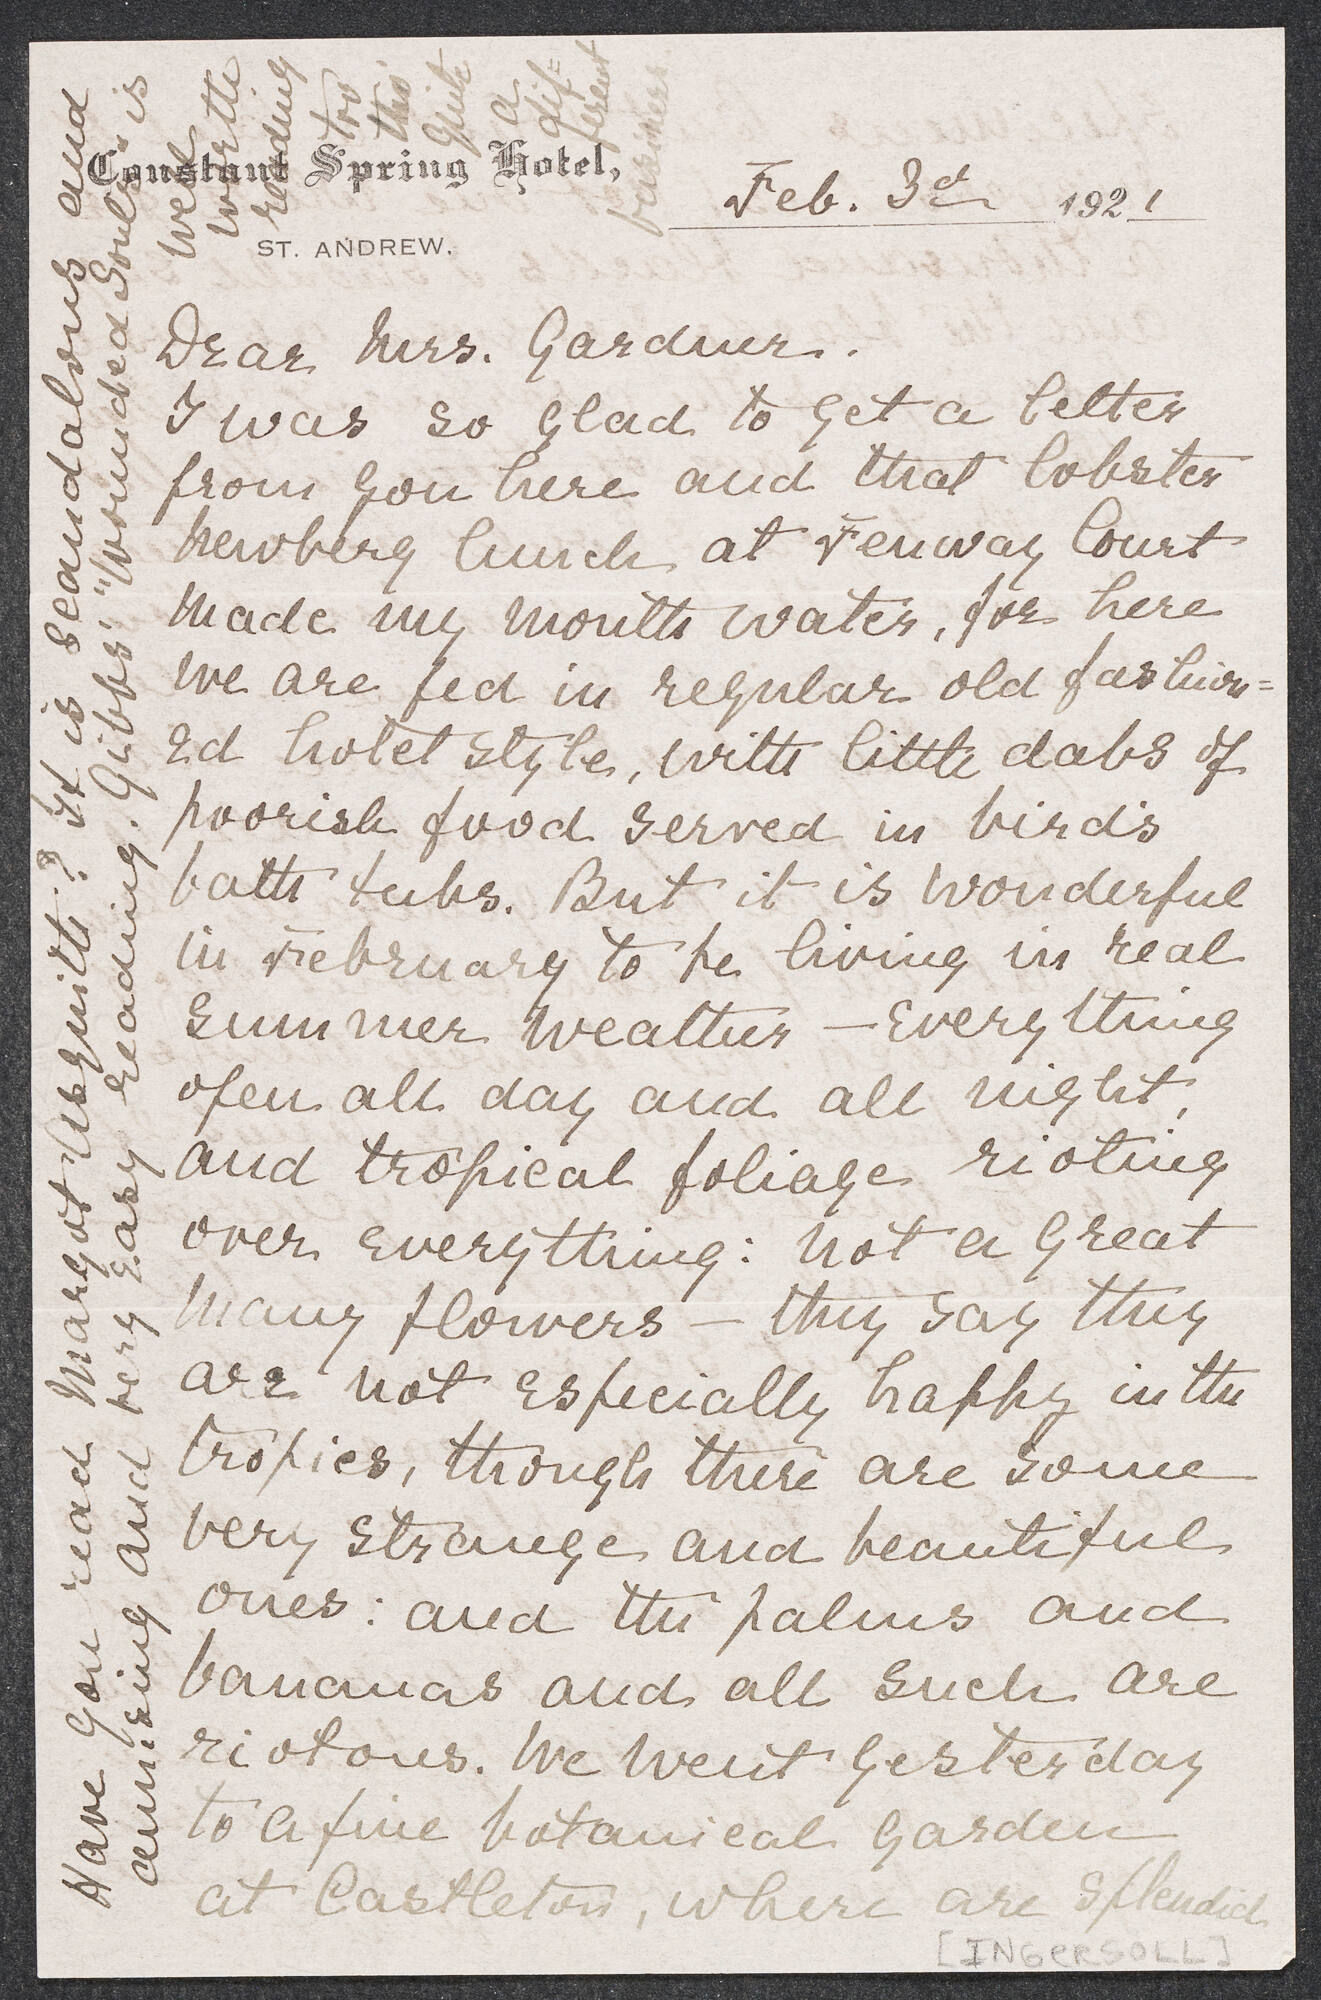 Constant Spring Hotel,
ST. ANDREW.
Feb. 3d 1921
Dear Mrs. Gardner.
I was so glad to get a letter
from you here and that lobster
Newberg lunch at Fenway Court
made my mouth water, for here
we are fed in regular old fashion=
ed hotel style, with little dabs of
poorish food served in bird's
bath tubs. But it is wonderful
in February to be living in real
summer weather — everything
open all day and all night,
and tropical foliage rioting
over everything: not a great
many flowers — they say they
are not especially happy in the
tropics, though there are some
very strange and beautiful
ones: and the palms and
bananas and all such are
riotous. We went yesterday
to a fine botanical garden
at Castleton, where are splendid
Have you read Margot Asquith? It is scandalous and
amusing and very easy reading. Gibbs' "Wounded Souls" is
well
worth
reading
too
tho'
quite
a
dif=
ferent
business
[INGERSOLL]